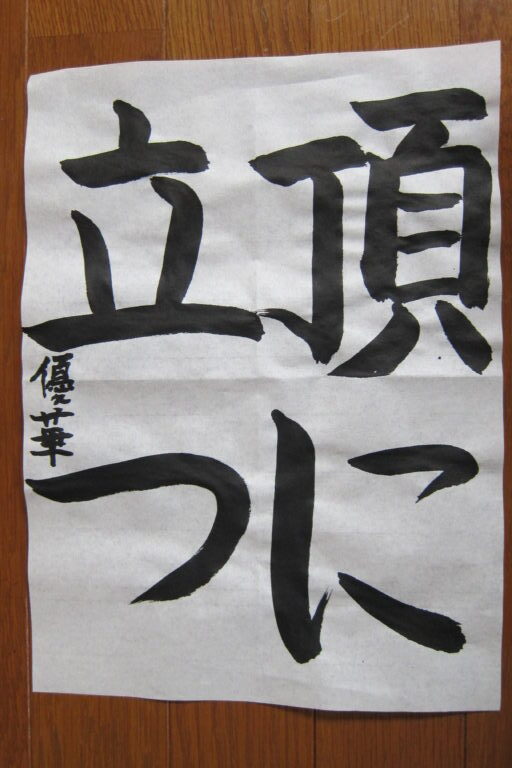 頂に
立つ
優華